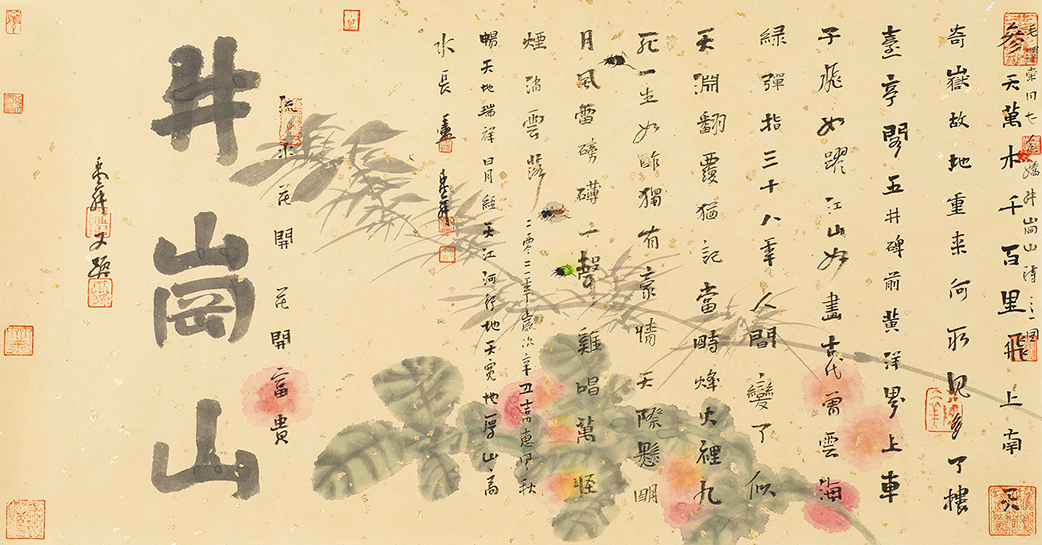 毛澤東同志念奴嬌井崗山詩之一
參天萬木千百里飛上南天
奇嶽故地重來何所見多了樓
臺亭閣五井碑前黃洋界上車
子飛如躍江山如畫古代曾雲海
綠彈指三十八年人間變了似
天淵翻覆猶記當時烽火裡九
死一生如昨獨有豪情天際懸明
月風雷磅礴一聲雞唱萬怪
煙消雲落 二零二一年歲次辛丑惠風秋
暢天地瑞祥日月經天江河行地天寬地厚山高
水長
流水花開花開富貴
井崗山